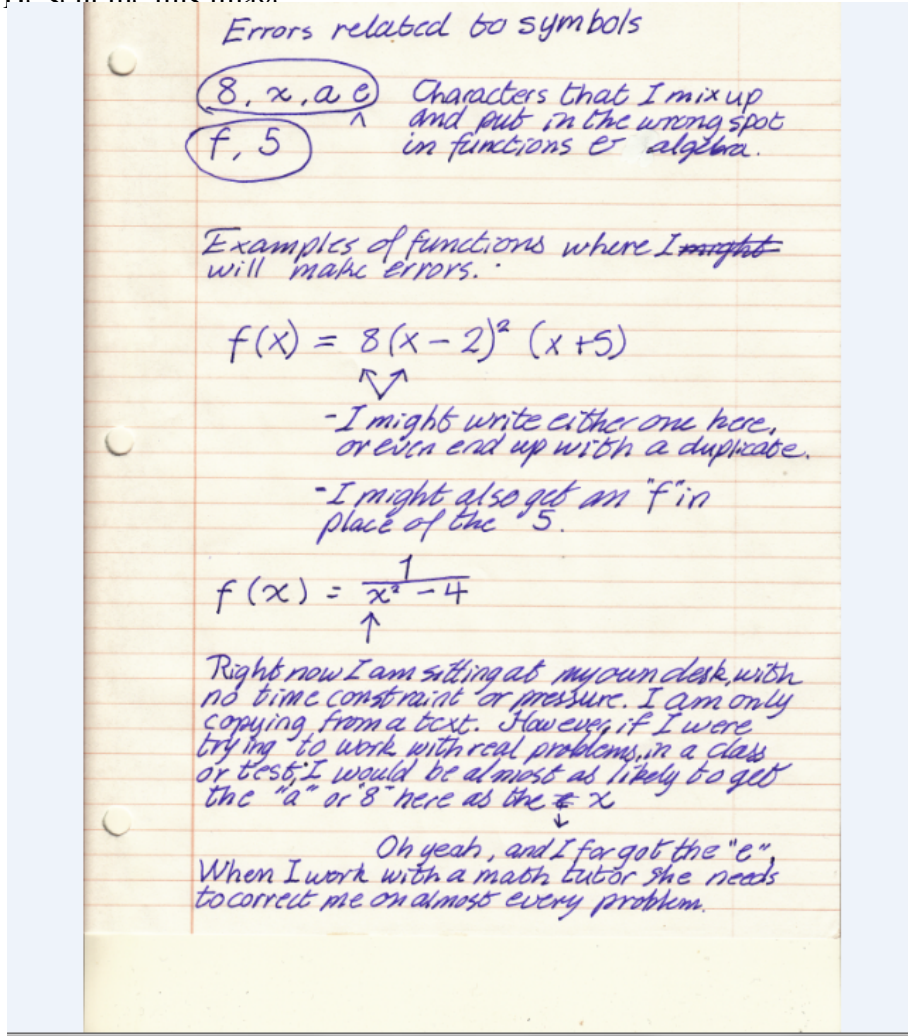 Errors related to symbols
8, x, a e Characters that I mix up
^ and put in the wrong spot
f, 5 in functions & algebra.
Examples of functions where I might
will make errors.
f(x) = 8(x - 2)² (x +5)
- I might write either one here,
or even end up with a duplicate.
- I might also get an "f" in
place of the 5.
f (x) = 1 / x² - 4
Right now I am sitting at my own desk, with
no time constraint or pressure. I am only
copying from a text. However, if I were
trying to work with real problems, in a class
or test, I would be almost as likely to get
the "a" or "8" here as the x
Oh yeah, and I forgot the "e",
When I work with a math tutor she needs
to correct me on almost every problem.